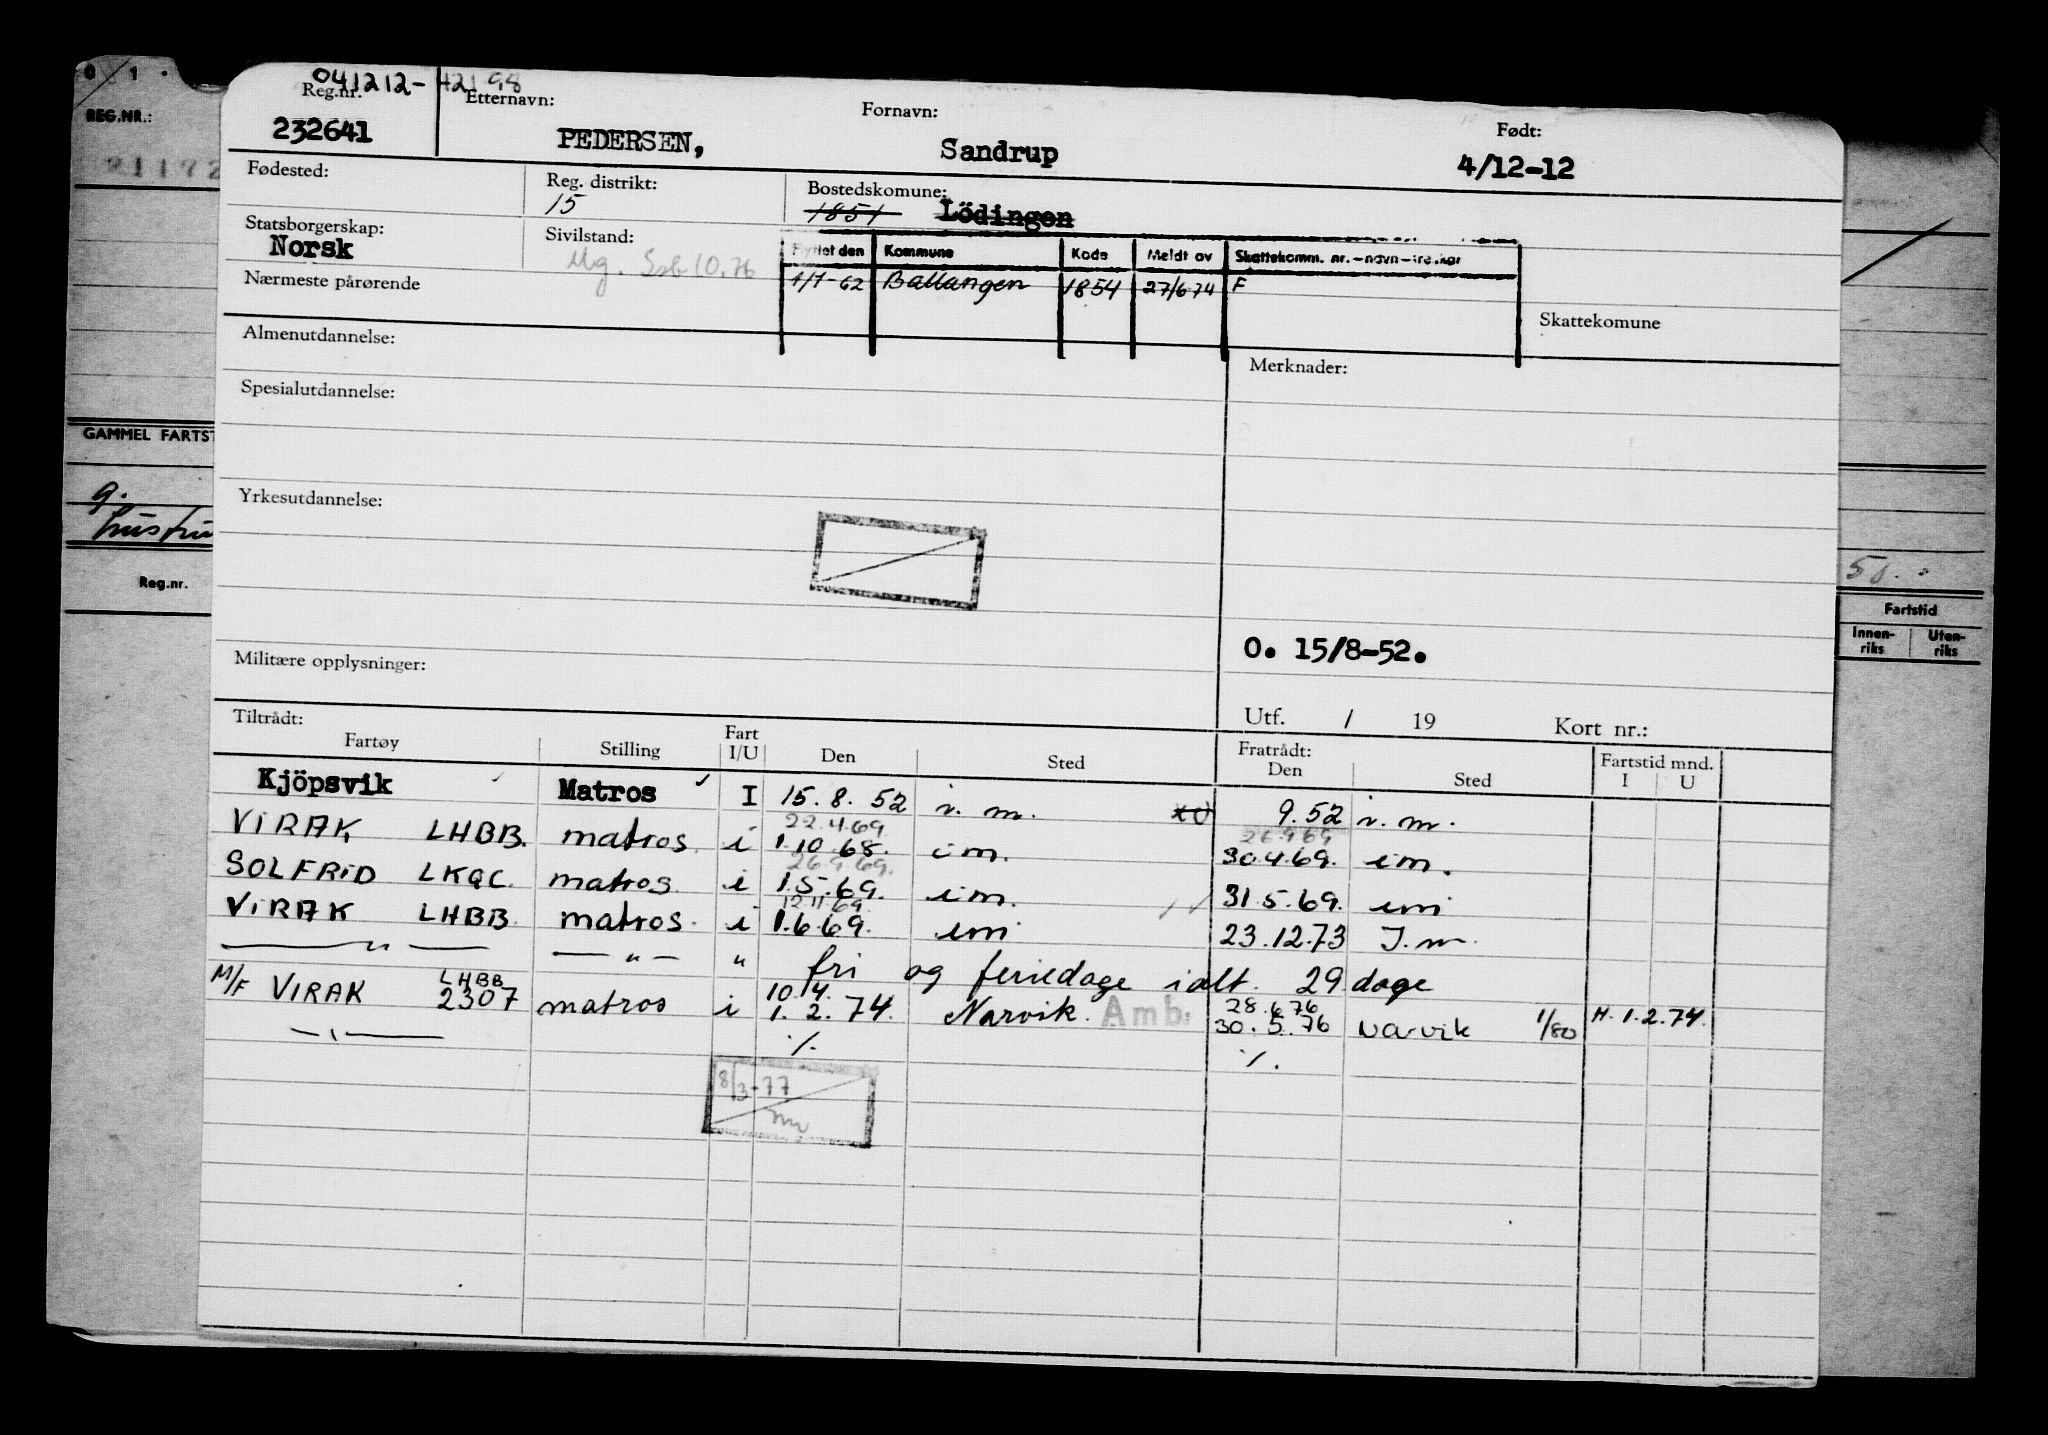 0 / 1 .
REG.NR.:
041212-42198
Reg.nr. Etternavn: Fornavn: Født:
232641 PEDERSEN, Sandrup 4/12-12
Fødested: Reg. distrikt: Bostedskomune:
15 1851 Lödingen
Statsborgerskap: Sivilstand:
Norsk Ug. Ssb 10.76
Flyttet den Kommune Kode Meldt av Skattekomm. nr.-navn-tre.kar
Nærmeste pårørende 1/7-62 Ballangen 1854 27/6 74 F
Skattekomune
Almenutdannelse: Merknader:
Spesialutdannelse:
GAMMEL FARTST
Yrkesutdannelse:
g.
hustru
Reg.nr.
50.
Fartstid
Innen-riks Uten-riks
O. 15/8-52.
Militære opplysninger:
Tiltrådt: Utf. / 19 Kort nr.:
Fartøy Stilling Fart I/U Den Sted Fratrådt: Den Sted Fartstid mnd. I U
Kjöpsvik Matros I 15. 8. 52 i. m. 9. 52 i. m.
22.4.69 26.9.69
VIRAK LHBB. matros. i 1.10.68. im. 30.4.69. im.
26.9.69.
SOLFRID LKQC. matros i 1.5.69. im. 31.5.69. im
12.11.69.
VIRAK LHBB. matros. i 1.6.69. im 23.12.73 I.m.
— " — — " — " fri og feriedage ialt. 29 dage
LHBB 10.4. 28.6.76
M/F VIRAK 2307 matros i 1. 2. 74. Narvik. Amb. 30. 5. 76 Narvik 1/80 H. 1.2.74.
— " — ./. ./.
8/3-77